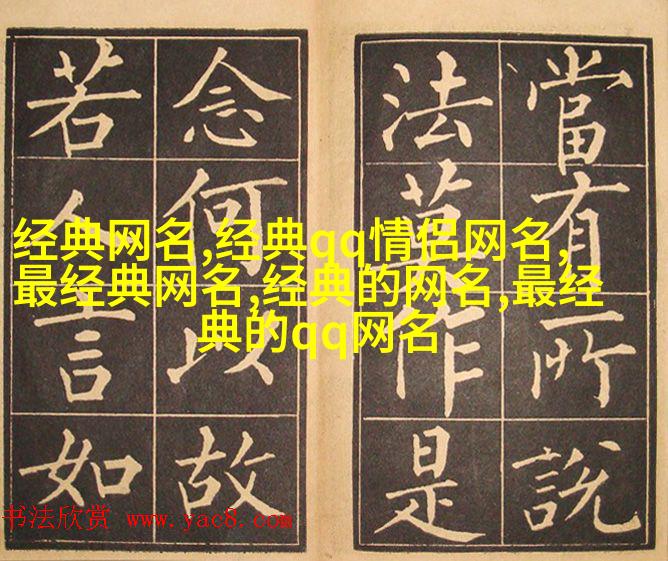 當有所說
法莫作是
念何以故
若人言如
经典网名,经典qq情侣网名,
最经典网名,经典的网名,最经
典的qq网名
书法欣赏 www.yac8.com